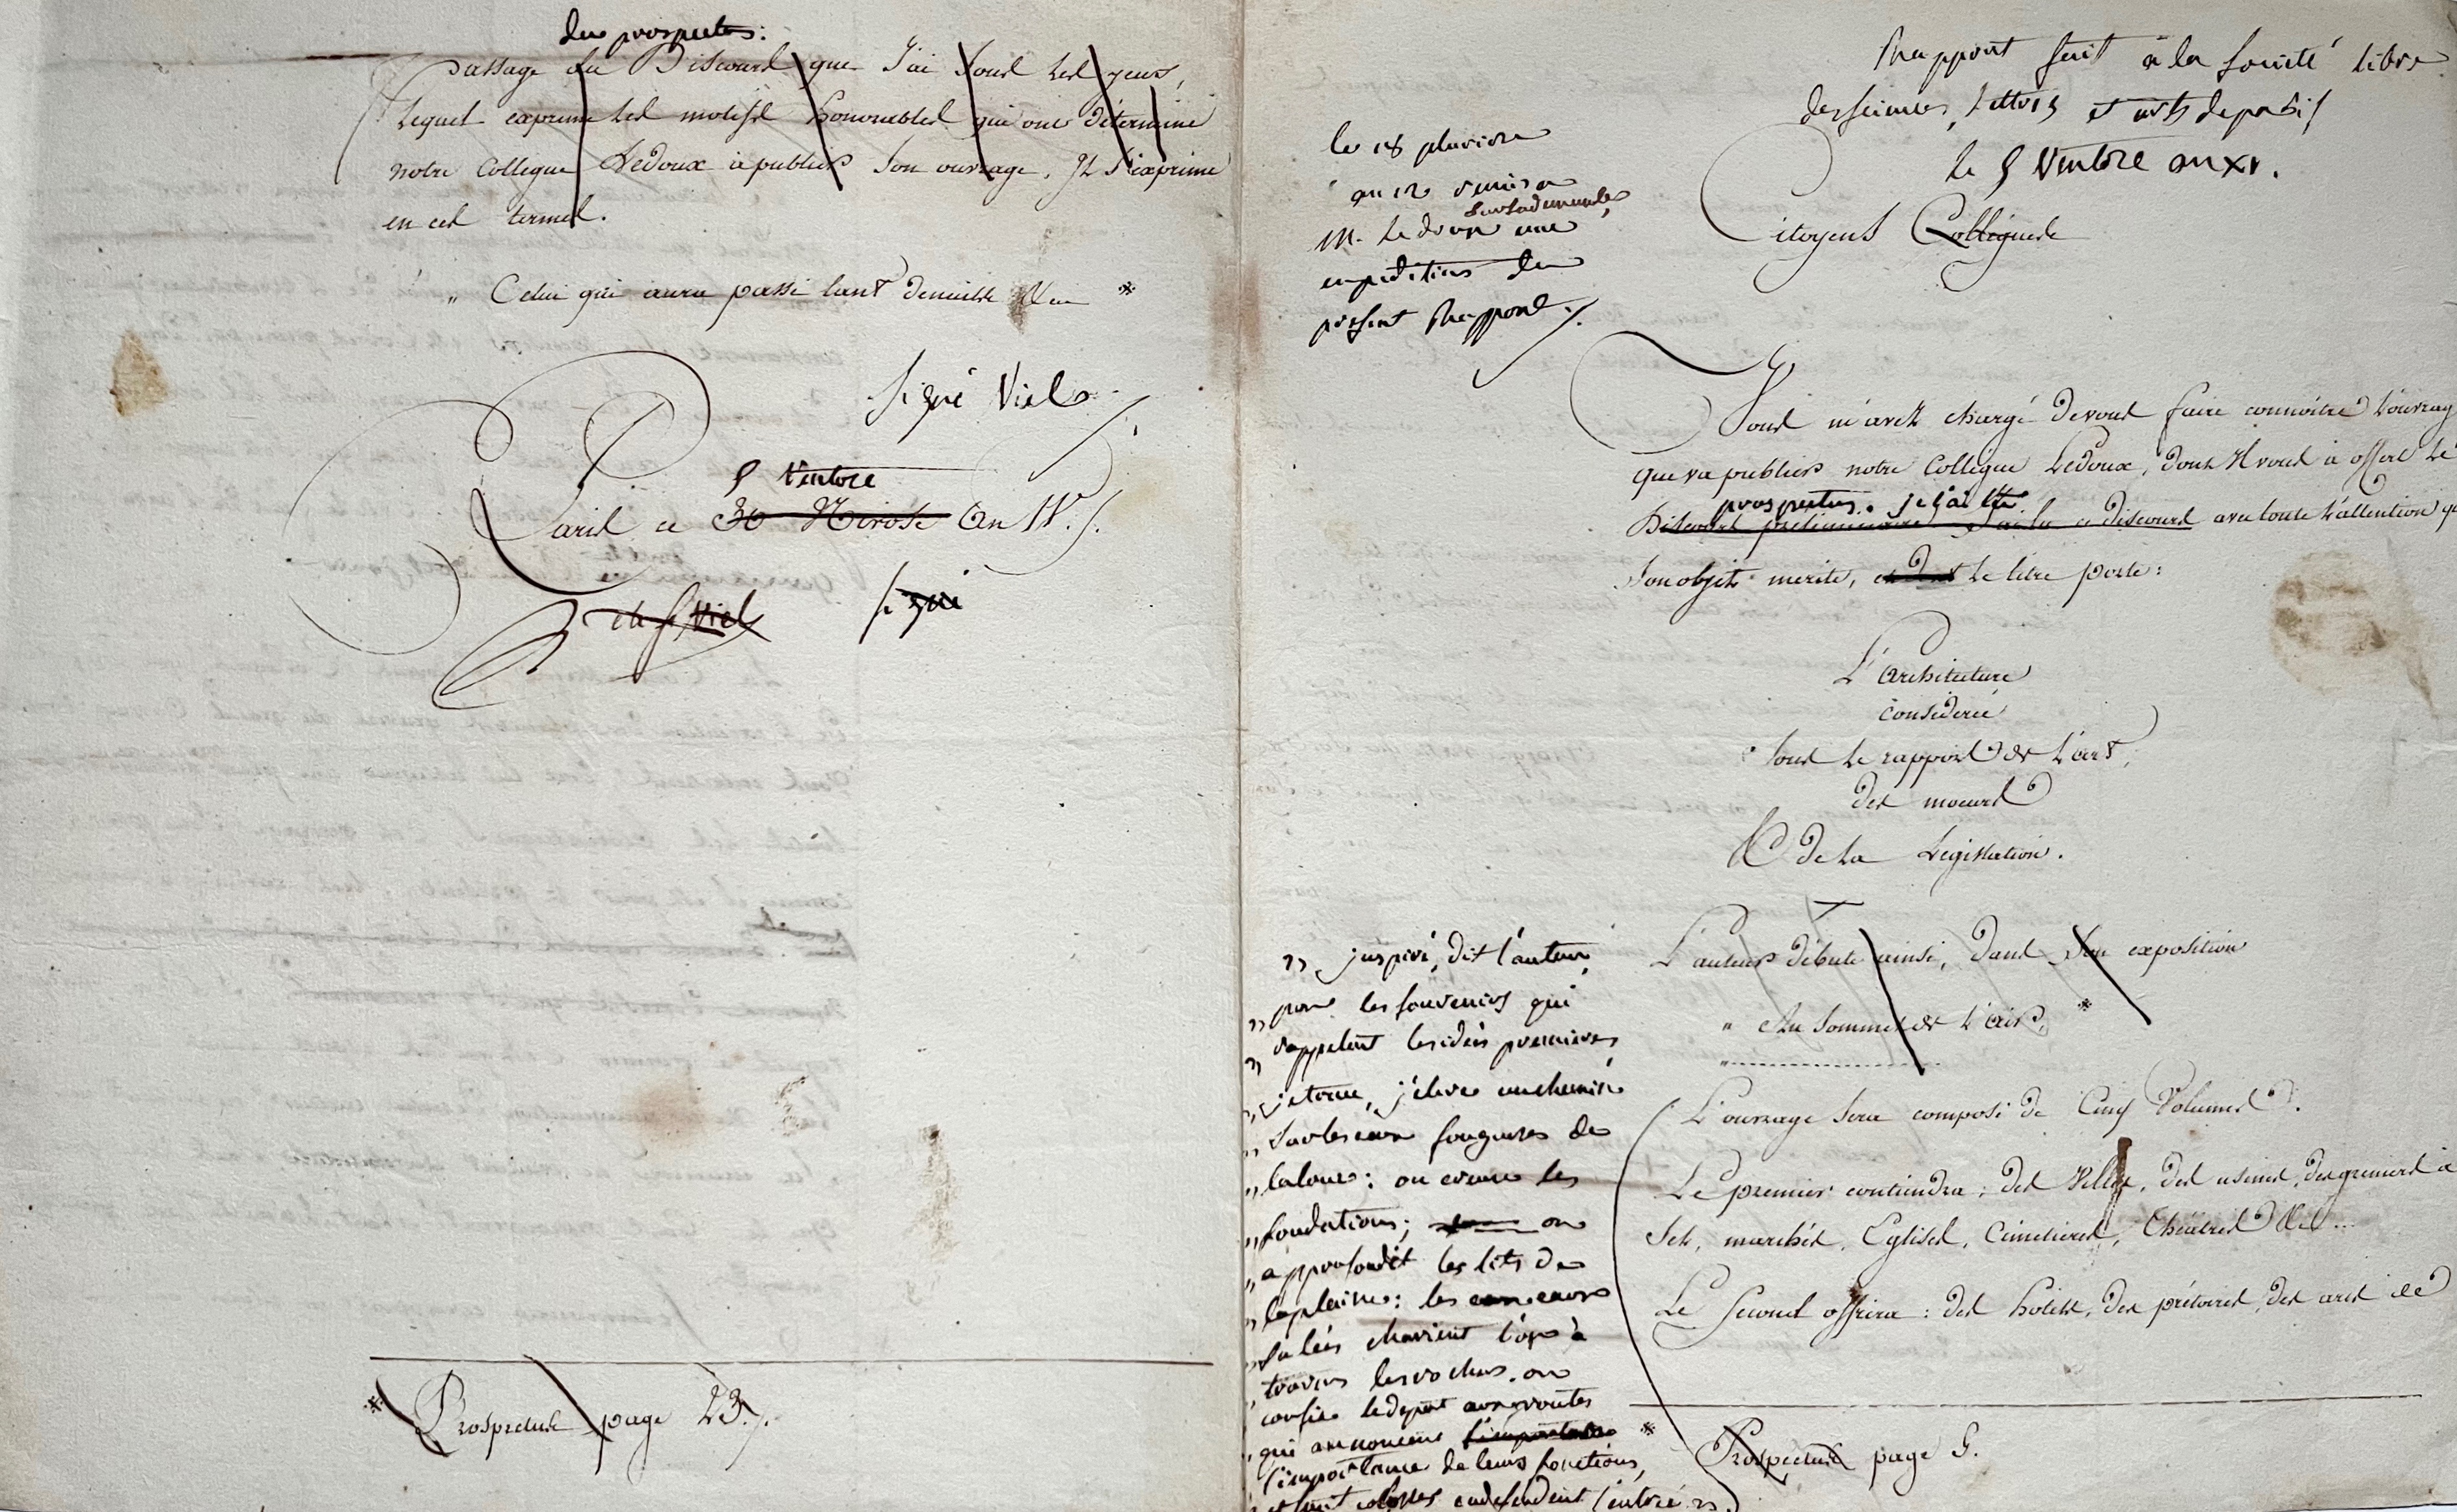 du prospectus:
passage du Discours que J'ai sous les yeux,
lequel exprime les motifs honorables qui ont déterminé
notre Collegue Ledoux à publier son ouvrage. Il s'exprime
en ces termes.
„ Celui qui aura passé tant de nuits &ca *
signé Viel
5 Ventose
Paris ce 30 Nivose An 11./.
Ch. f. Viel signé
* Prospectus page 23./.
Rapport fait à la société libre
des sciences, lettres et arts de paris /
le 5 Ventose an XI.
le 18 pluviose
an 12 remis a
sur sa demande,
M. Ledoux une
expédition du
présent Rapport ./.
Citoyens Collégues
Vous m'avez chargé de vous faire connoitre l'ouvrag
que va publier notre Collegue Ledoux, dont Il vous a offert le
prospectus. je l'ai lu
Discours préliminaire J'ai lu ce Discours avec toute l'attention qu
son objet merite, le titre porte:
L'Architecture
considerée
sous le rapport de L'art,
des moeurs
& de la Législation.
L'auteur débute ainsi, dans son exposition
„ Au sommet de L'air, *
L'ouvrage sera composé de Cinq Volumes.
Le premier contiendra; des Villes, des usines, des greniers à
sel, marchés, Eglises, Cimetieres, théâtres &c...
Le second offrira: des hotels, des prétoires, des arcs de
* Prospectus page 5.
„ inspiré, dit l'auteur,
„ par les souvenirs qui
„ rappelent les idées premieres,
„ je trace, j'éleve un chemin
„ sur les eaux fougueuses de
„ la loue: on creuse les
„ fondations; on
„ approfondit les lits de
„ la plaine: les eaux
„ salées charient l'or à
„ travers les rochers. on
„ confie le depot aux voutes
„ qui annoncent l'importance
„ l'importance de leurs fonctions,
„ et sont colosses en defendent l'entrée „